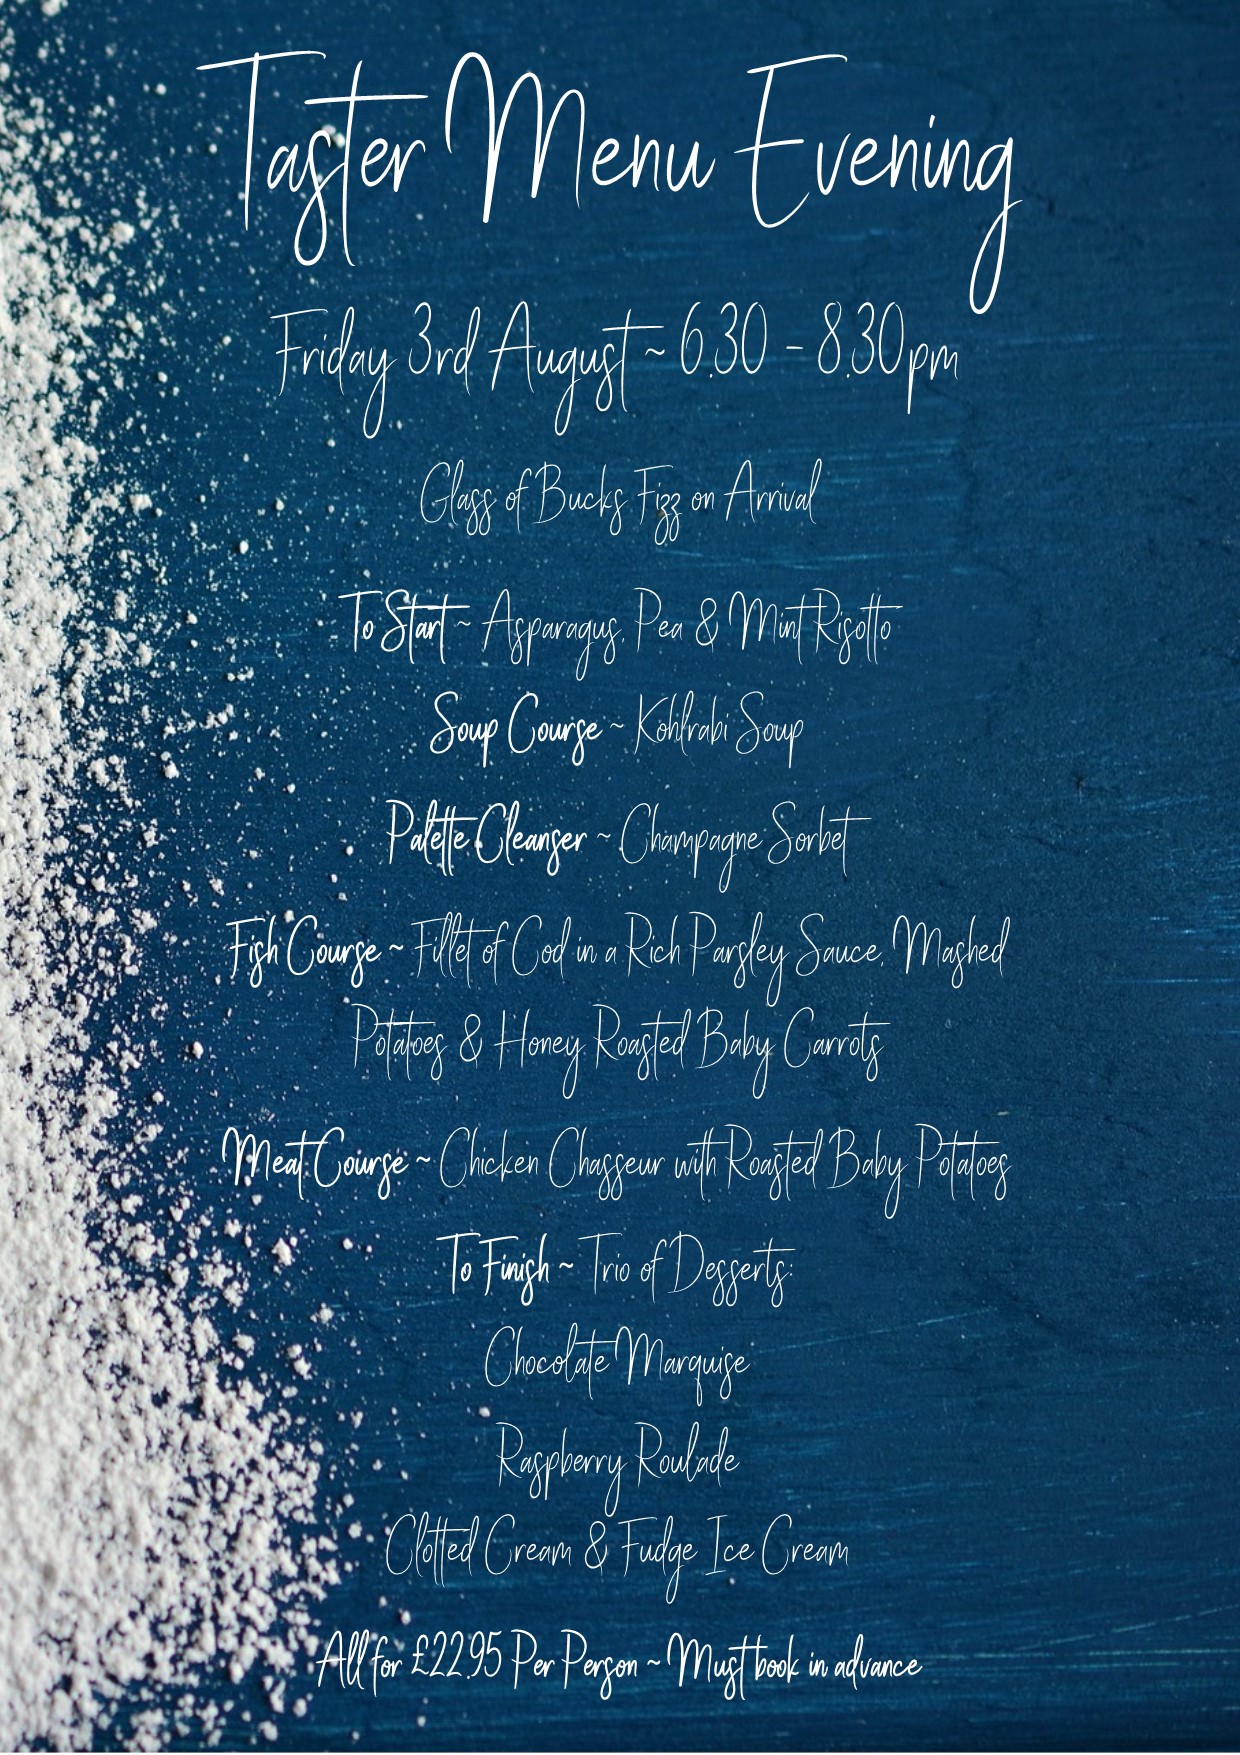 Taster Menu Evening
Friday 3rd August ~ 6.30 - 8.30pm
Glass of Bucks Fizz on Arrival
To Start ~ Asparagus, Pea & Mint Risotto
Soup Course ~ Kohlrabi Soup
Palette Cleanser ~ Champagne Sorbet
Fish Course ~ Fillet of Cod in a Rich Parsley Sauce, Mashed
Potatoes & Honey Roasted Baby Carrots
Meat Course ~ Chicken Chasseur with Roasted Baby Potatoes
To Finish ~ Trio of Desserts:
Chocolate Marquise
Raspberry Roulade
Clotted Cream & Fudge Ice Cream
All for £22.95 Per Person ~ Must book in advance